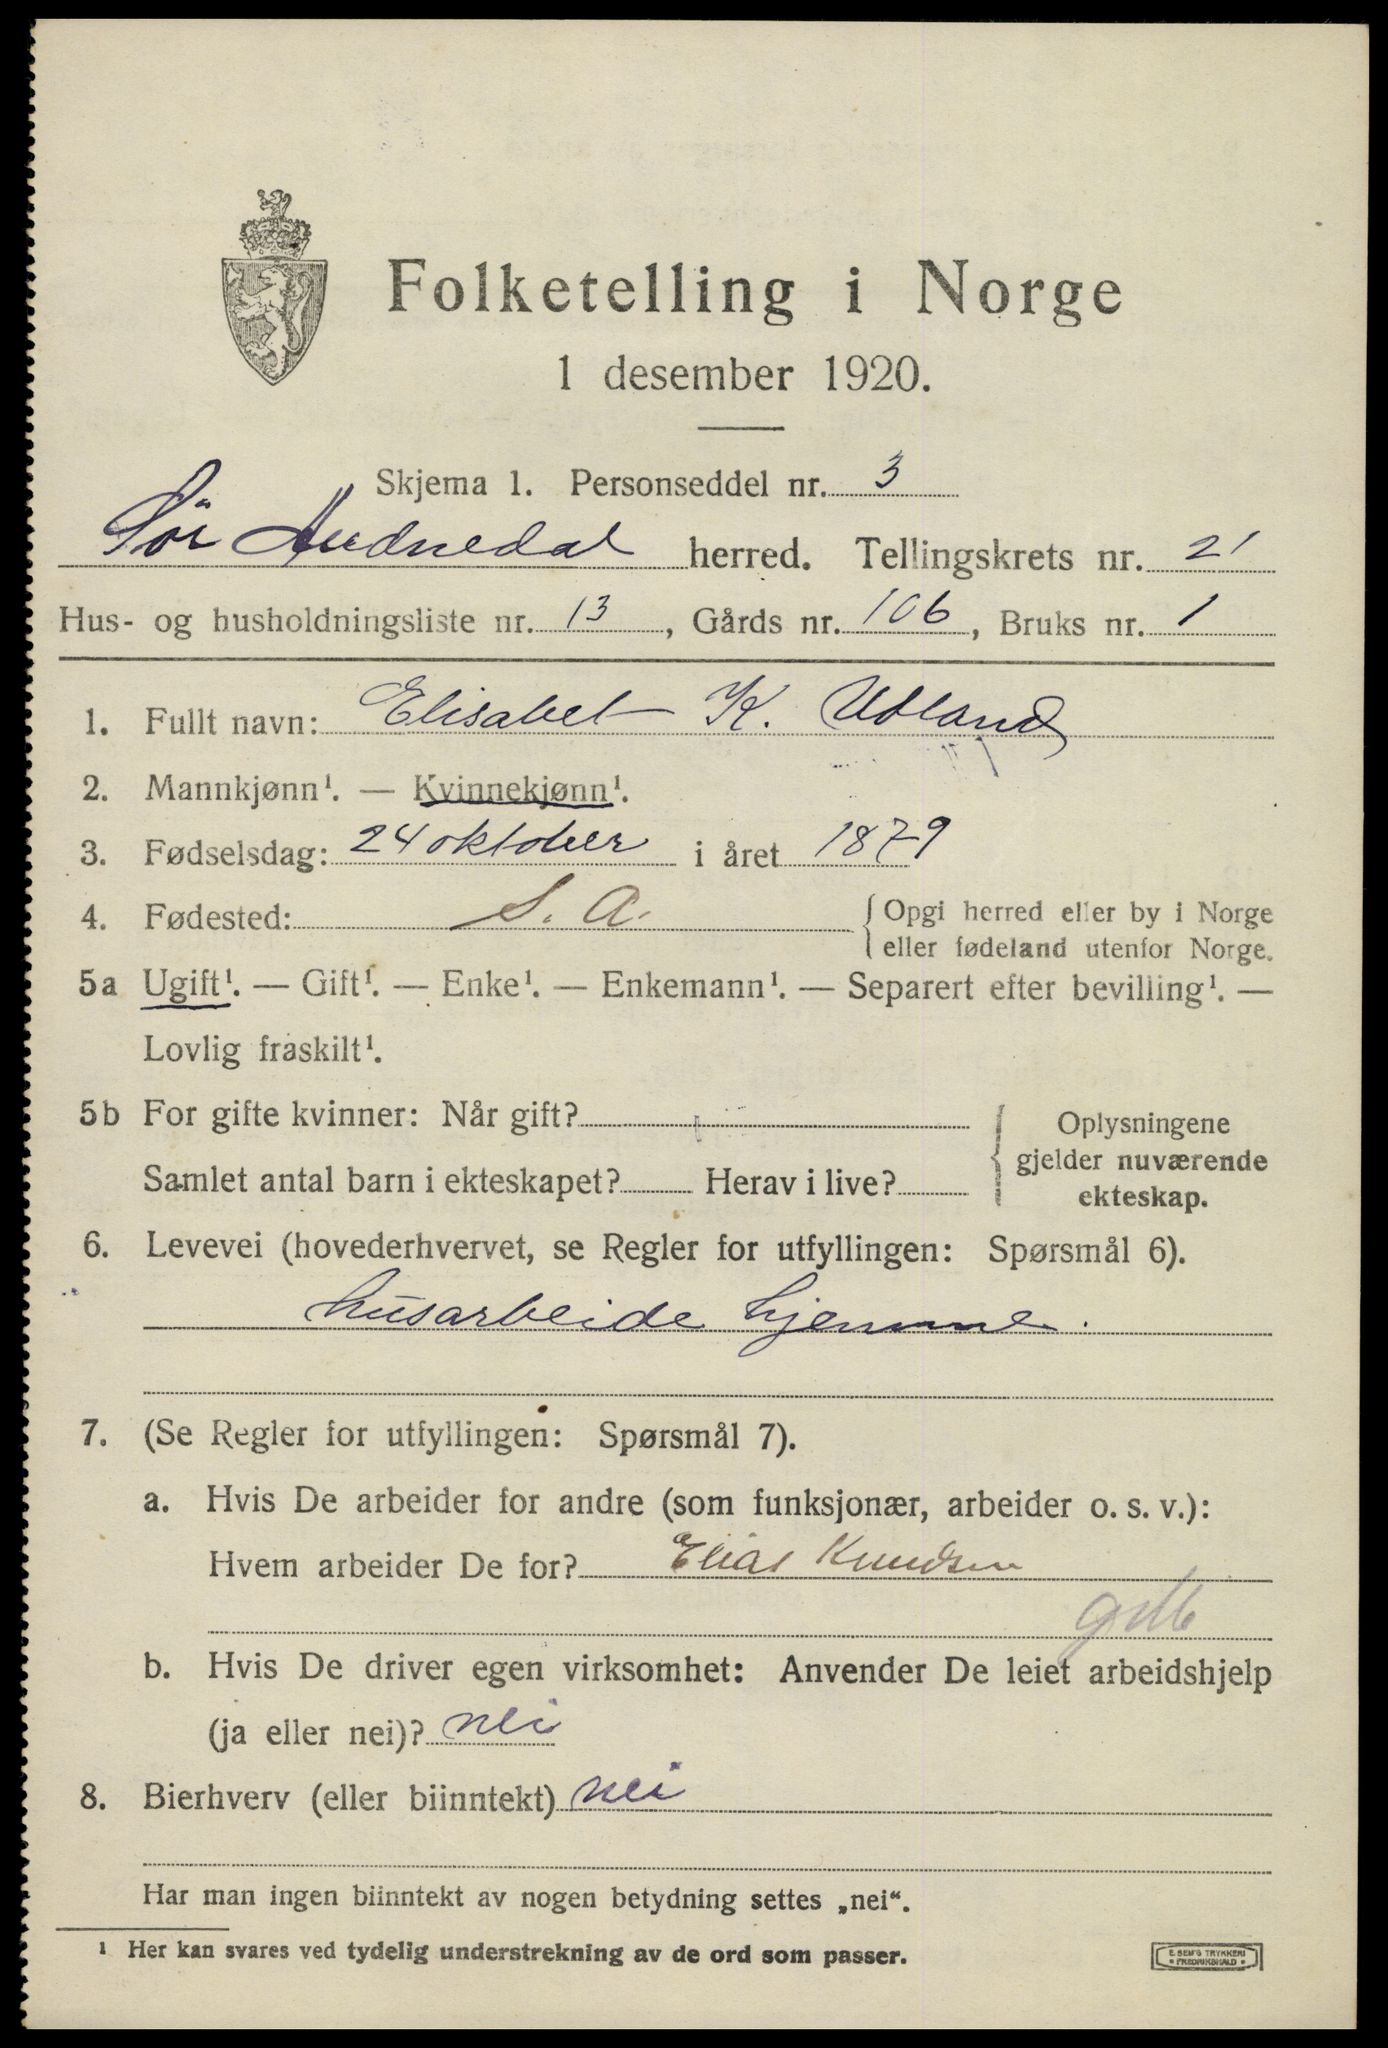 Folketelling i Norge
1 desember 1920.
Skjema 1. Personseddel nr. 3
Sör Audnedal herred. Tellingskrets nr. 21
Hus- og husholdningsliste nr. 13, Gårds nr. 106, Bruks nr. 1
1. Fullt navn: Elisabet K. Udland
2. Mannkjønn¹. — Kvinnekjønn¹.
3. Fødselsdag: 24 oktober i året 1879
4. Fødested: S. A. { Opgi herred eller by i Norge
eller fødeland utenfor Norge.
5a Ugift¹. — Gift¹. — Enke¹. — Enkemann¹. — Separert efter bevilling¹. —
Lovlig fraskilt¹.
5b For gifte kvinner: Når gift?
Samlet antal barn i ekteskapet? Herav i live?
Oplysningene
gjelder nuværende
ekteskap.
6. Levevei (hovederhvervet, se Regler for utfyllingen: Spørsmål 6).
husarbeide hjemme.
7. (Se Regler for utfyllingen: Spørsmål 7).
a. Hvis De arbeider for andre (som funksjonær, arbeider o. s. v.):
Hvem arbeider De for? Elias Knudsen
b. Hvis De driver egen virksomhet: Anvender De leiet arbeidshjelp
(ja eller nei)? nei
8. Bierhverv (eller biinntekt) nei
Har man ingen biinntekt av nogen betydning settes „nei“.
¹ Her kan svares ved tydelig understrekning av de ord som passer.
E. SEM'S TRYKKERI
FREDRIKSHALD